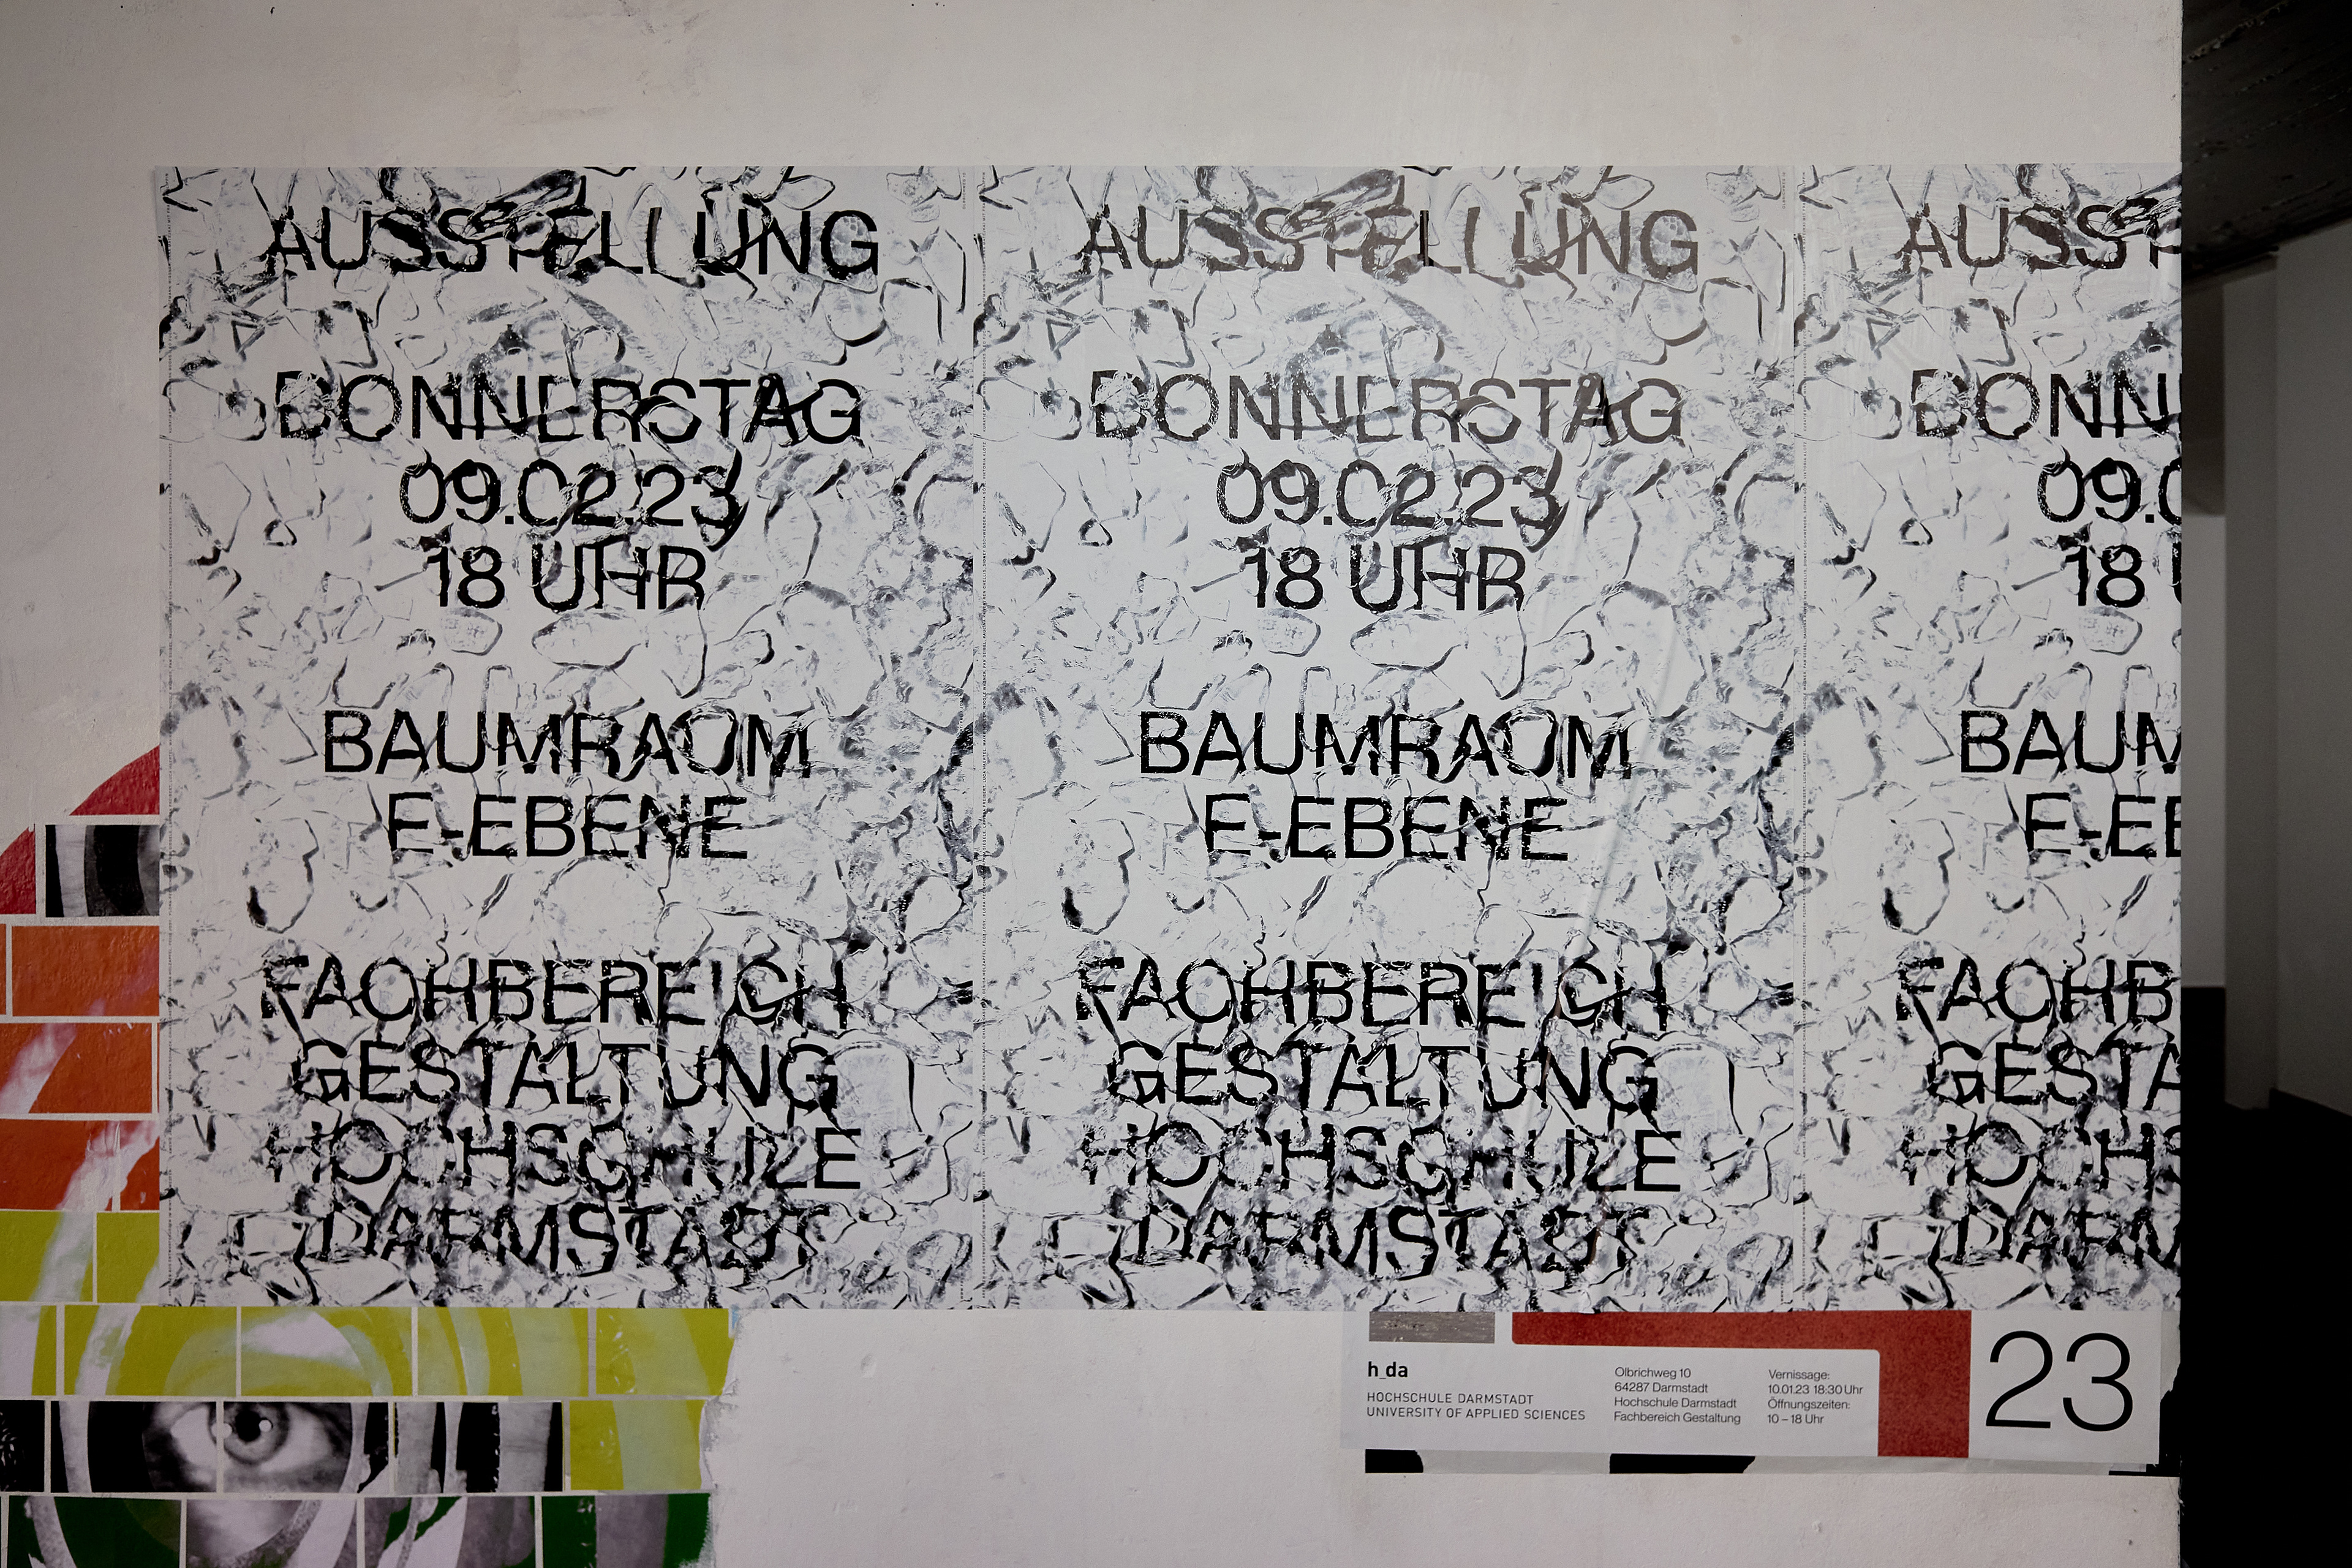 AUSSTELLUNG
DONNERSTAG
09.02.23
18 UHR
BAUMRAUM
E-EBENE
FACHBEREICH
GESTALTUNG
HOCHSCHULE
DARMSTADT
AUSSTELLUNG
DONNERSTAG
09.02.23
18 UHR
BAUMRAUM
E-EBENE
FACHBEREICH
GESTALTUNG
HOCHSCHULE
DARMSTADT
AUSST
DONN
09.0
18 U
BAUM
E-EB
FACHB
GESTA
HOCHS
DARM
h_da
HOCHSCHULE DARMSTADT
UNIVERSITY OF APPLIED SCIENCES
Olbrichweg 10
64287 Darmstadt
Hochschule Darmstadt
Fachbereich Gestaltung
Vernissage:
10.01.23 18:30 Uhr
Öffnungszeiten:
10 – 18 Uhr
23